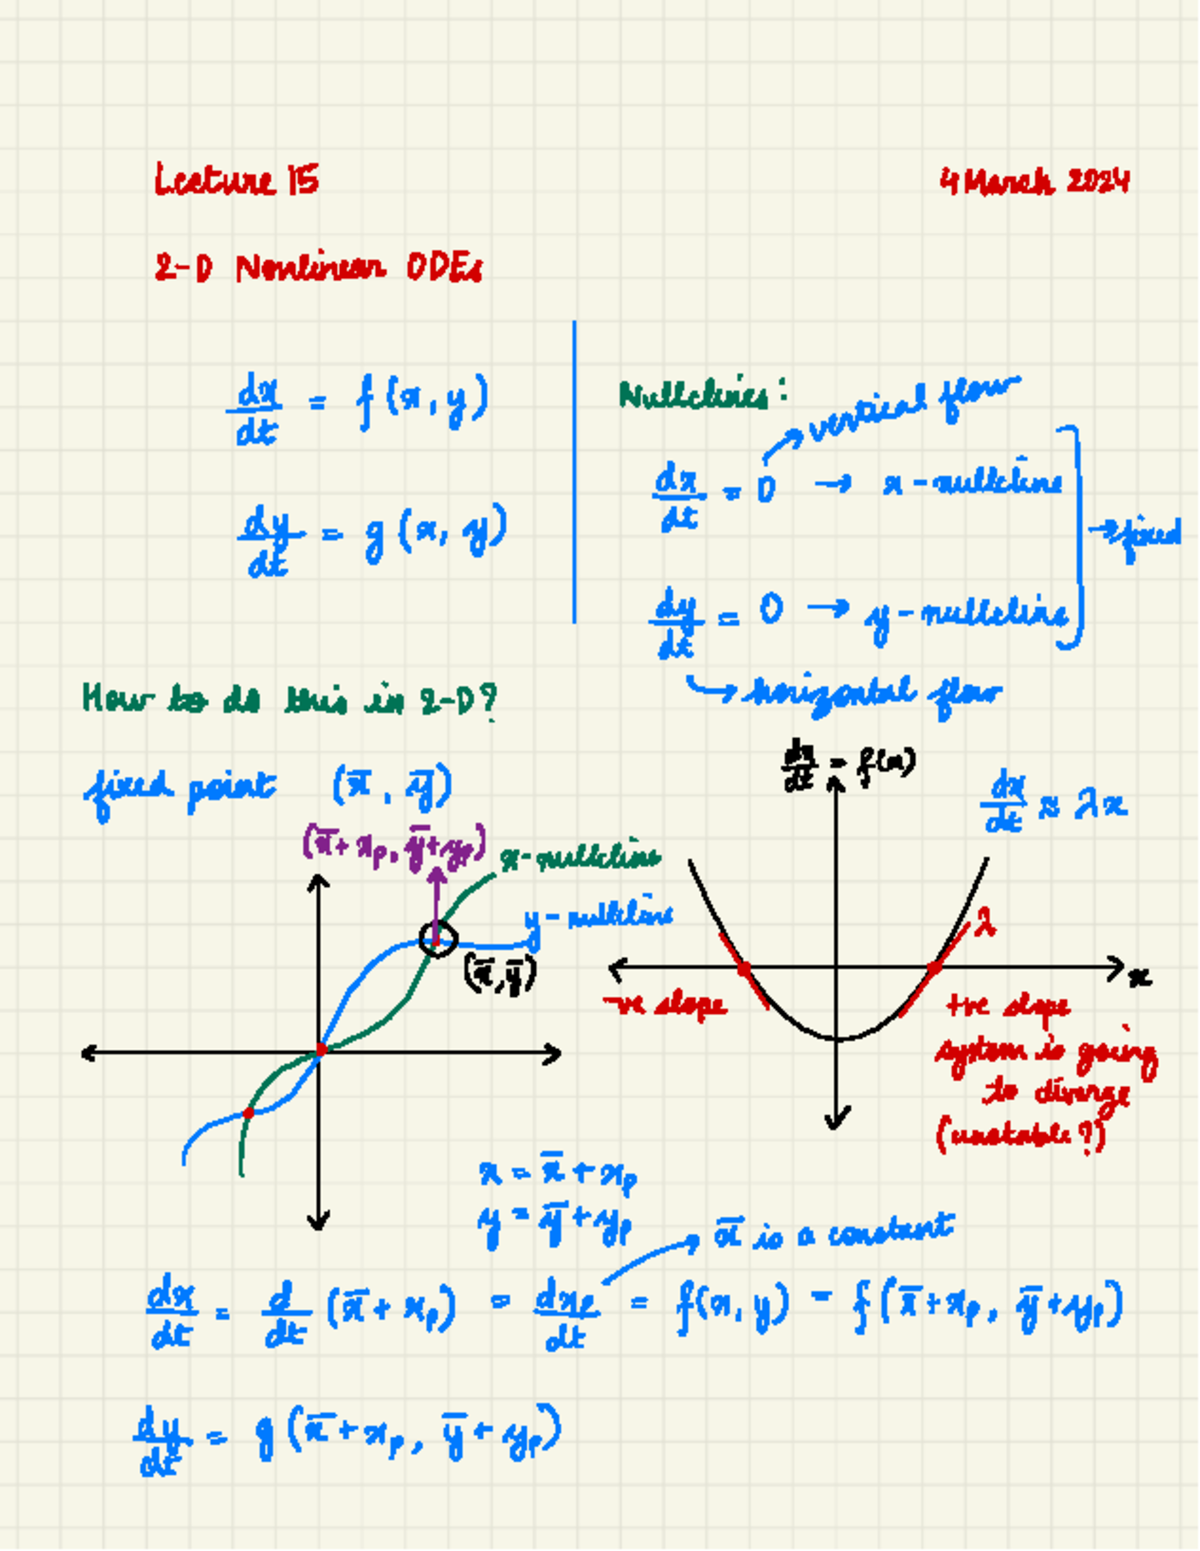 Lecture 15
4 March 2024
2-D Nonlinear ODEs
dx/dt = f(x, y)
dy/dt = g(x, y)
Nullclines:
→ vertical flow
dx/dt = 0 → x-nullcline
→ fixed
dy/dt = 0 → y-nullcline
→ horizontal flow
How to do this in 2-D?
fixed point (x̄, ȳ)
(x̄+xₚ, ȳ+yₚ)
x-nullcline
y-nullcline
(x̄,ȳ)
dx/dt = f(x)
dx/dt ≈ λx
λ
x
-ve slope
+ve slope
system is going
to diverge
(unstable?)
x = x̄ + xₚ
y = ȳ + yₚ
→ x̄ is a constant
dx/dt = d/dt (x̄ + xₚ) = dxₚ/dt = f(x, y) = f(x̄+xₚ, ȳ+yₚ)
dy/dt = g(x̄+xₚ, ȳ+yₚ)